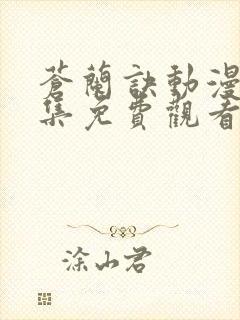 蒼蘭訣動漫
集免費觀看
涂山君